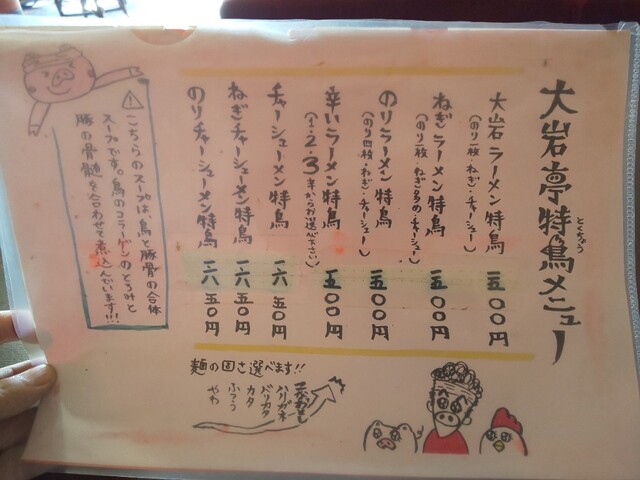 大岩亭特鳥メニュー
とくちょう
大岩ラーメン特鳥 一五〇〇円
(のり一枚・ねぎ・チャーシュー)
ねぎラーメン特鳥 一五〇〇円
(のり一枚・ねぎ多め・チャーシュー)
のりラーメン特鳥 一五〇〇円
(のり四枚・ねぎ・チャーシュー)
辛いラーメン特鳥 一五〇〇円
(1・2・3辛からお選べ下さい)
チャーシューメン特鳥 一六五〇円
ねぎチャーシューメン特鳥 一六五〇円
のりチャーシューメン特鳥 一六五〇円
こちらのスープは、鳥と豚骨の合体
スープです。鳥のコラーゲンのとろみと
豚の骨髄を合わせて煮込んでいます!!!
麺の固さ選べます!!
粉おとし
ハリガネ
バリカタ
カタ
ふつう
やわ